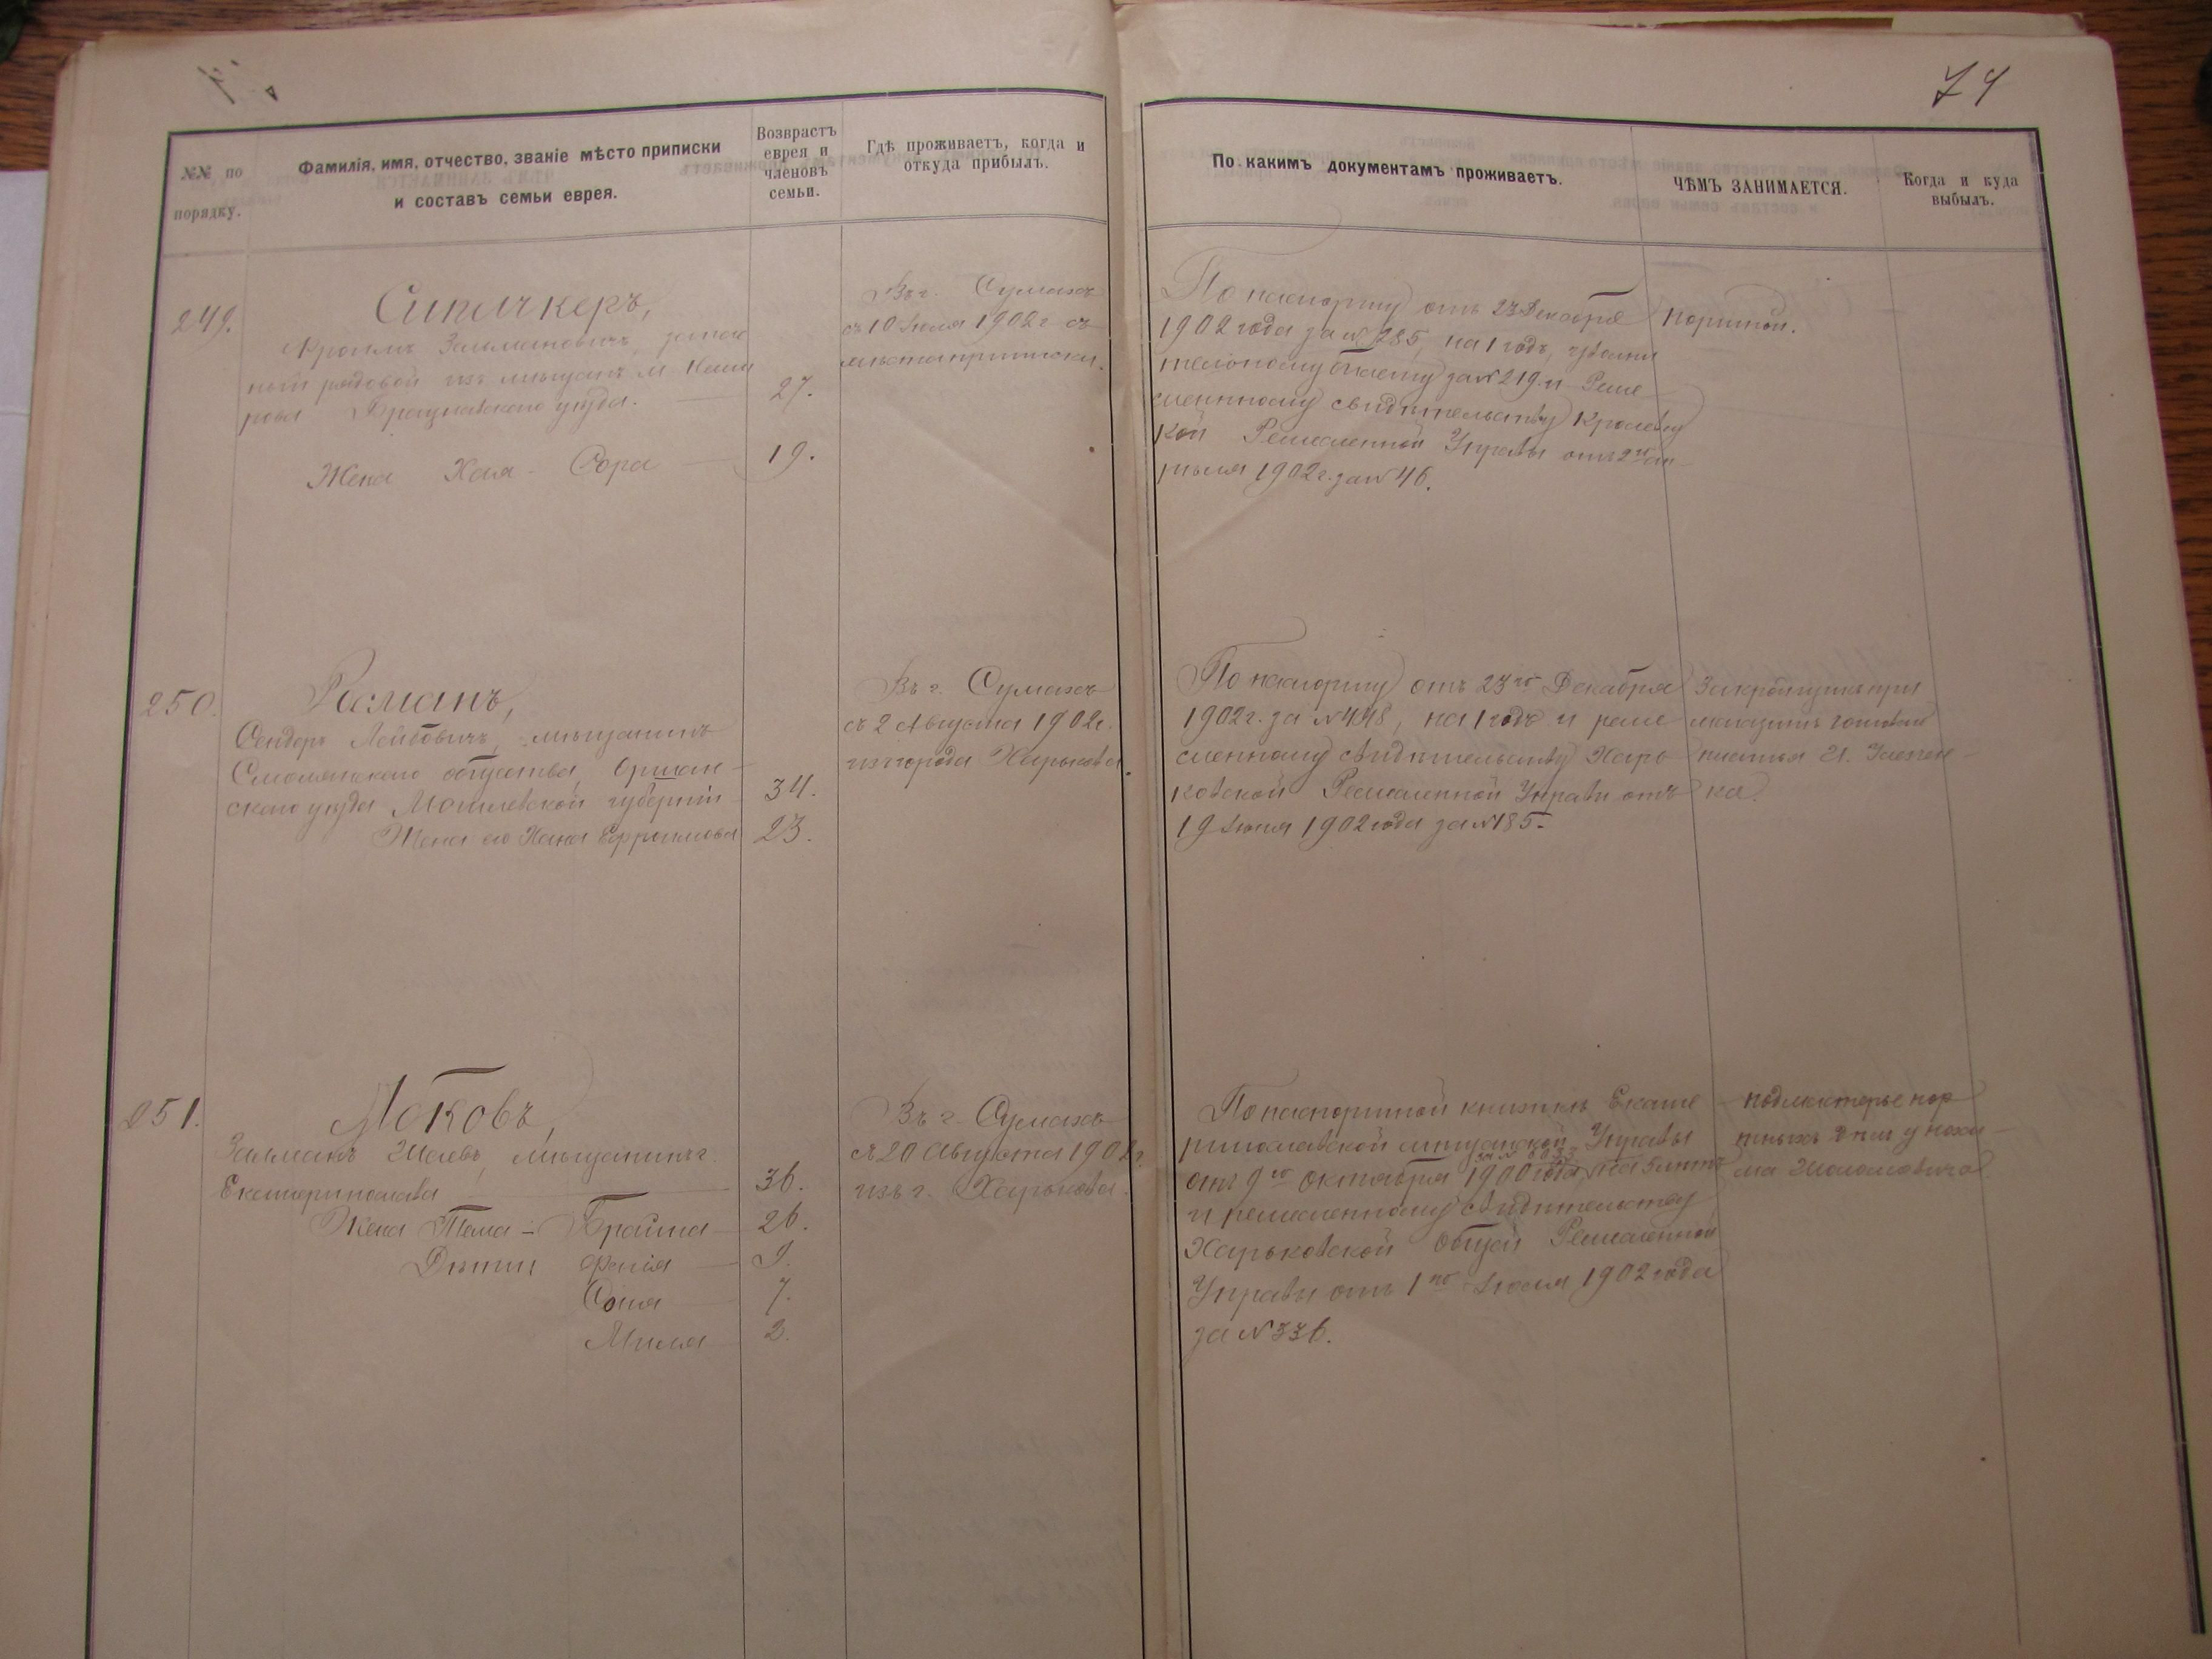 74
№№ по порядку.
Фамилія, имя, отчество, званіе мѣсто приписки
и составъ семьи еврея.
Возврастъ
еврея и
членовъ
семьи.
Гдѣ проживаетъ, когда и
откуда прибылъ.
По какимъ документамъ проживаетъ.
ЧѢМЪ ЗАНИМАЕТСЯ.
Когда и куда
выбылъ.
249.
Зальмановичъ, запас
ный рядовой изъ мѣщанъ м.
уѣзда.
27.
Жена Хая - Сора
19.
Въ г. Сумахъ
съ 10 Іюля 1902 г съ
мѣста приписки.
По паспорту отъ 23 Декабря
1902 года за № 285, на 1 годъ,
билету за № 219 и Реме
сленному свидѣтельству
кой Ремесленной Управы отъ 2 ап
рѣля 1902 г. за № 46.
портной.
250.
Расманъ,
Сендеръ Лейбовичъ, мѣщанинъ
Смолянскаго общества, Оршан
скаго уѣзда Могилевской губерніи
34.
Жена его Хана Ефроимова
23.
Въ г. Сумахъ
съ 2 Августа 1902 г.
изъ города Харькова.
По паспорту отъ 23го Декабря
1902 г. за № 448, на 1 годъ и реме
сленному свидѣтельству Харь
ковской Ремесленной Управы отъ
19 Іюня 1902 года за № 185.
Закройщикъ при
магазинѣ готоваго
платья
251.
Моковъ,
Залманъ Шаевъ, мѣщанинъ г.
Екатеринослава
36.
Жена Тема - Брайна
26.
Дѣти Фанія
9.
Соня
7.
Миля
2.
Въ г. Сумахъ
съ 20 Августа 1902 г.
изъ г. Харькова.
По паспортной книжкѣ Екате
ринославской мѣщанской Управы
отъ 9го Октября 1900 года на 5 лѣтъ
и ремесленному свидѣтельству
Харьковской Общей Ремесленной
Управы отъ 1го Іюля 1902 года
за № 336.
подмастерье пор